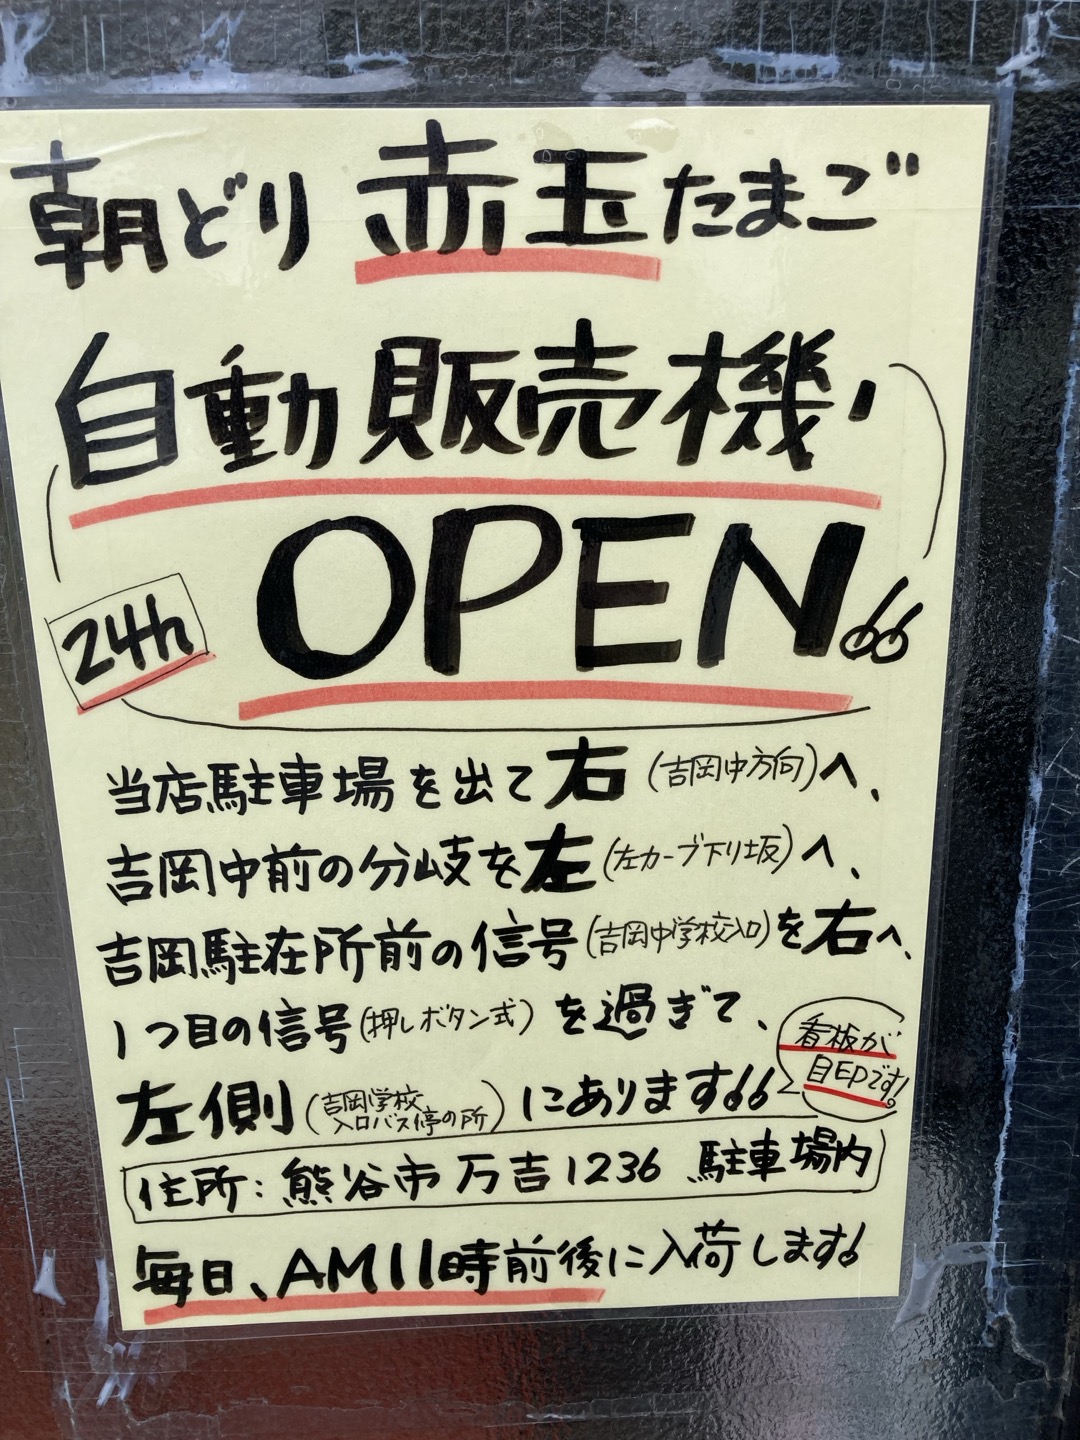 朝どり 赤玉たまご
自動販売機
OPEN!!
24h
当店駐車場を出て右(吉岡中方向)へ、
吉岡中前の分岐を左(左カーブ下り坂)へ、
吉岡駐在所前の信号(吉岡中学校入口)を右へ、
1つ目の信号(押しボタン式)を過ぎて、
左側(吉岡学校入口バス停の所)にあります!!
看板が
目印です!
住所:熊谷市万吉1236 駐車場内
毎日、AM11時前後に入荷します!